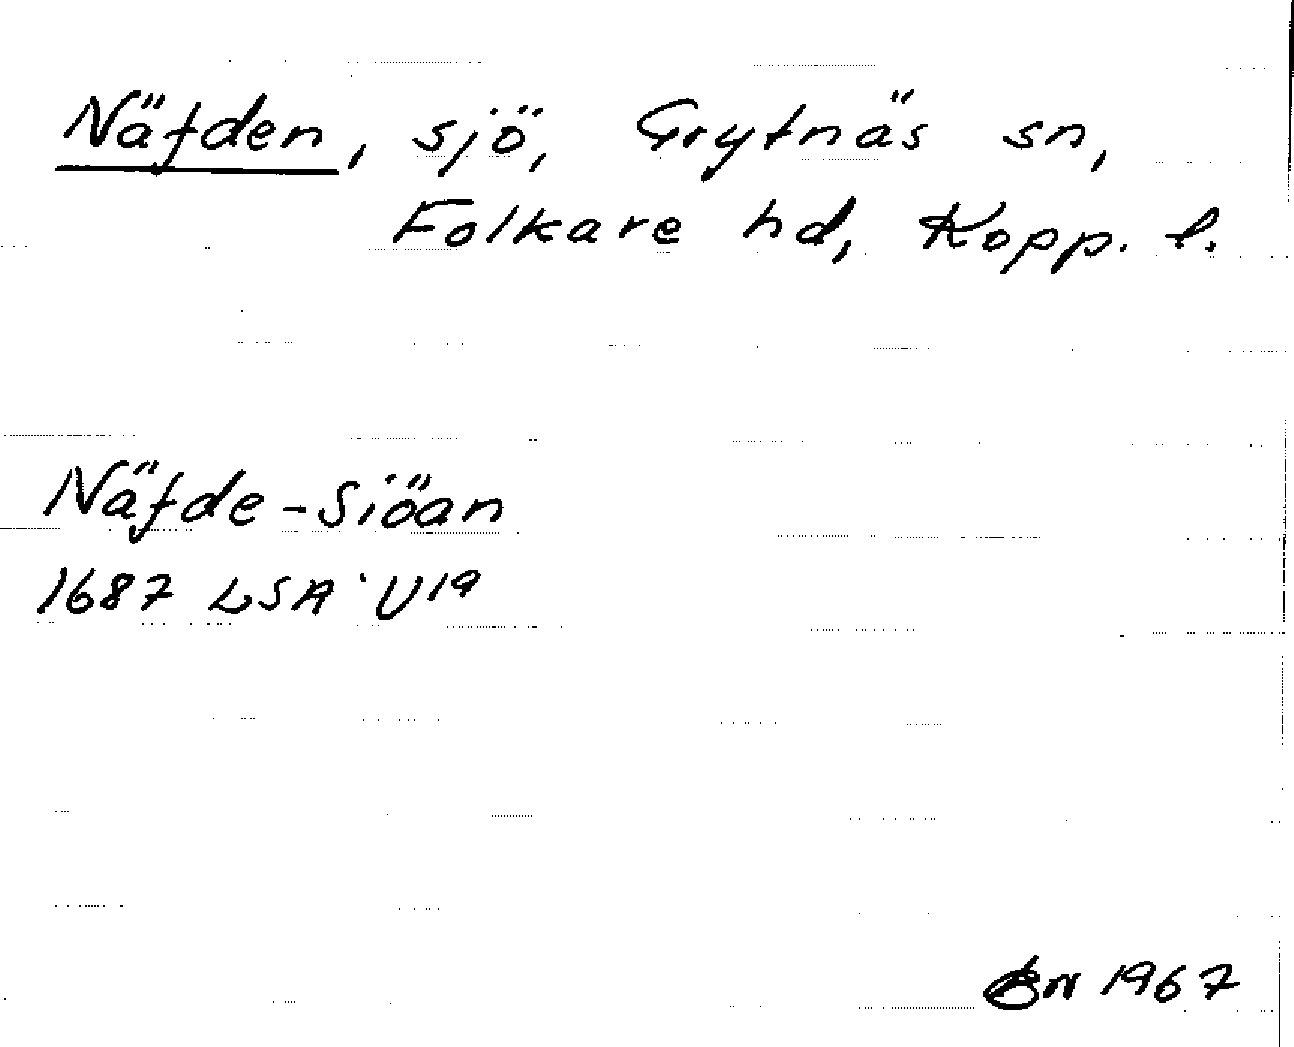 Näfden, sjö, Grytnäs sn,
Folkare hd, Kopp. l.
Näfde-Siöan
1687 LSA U19
1967